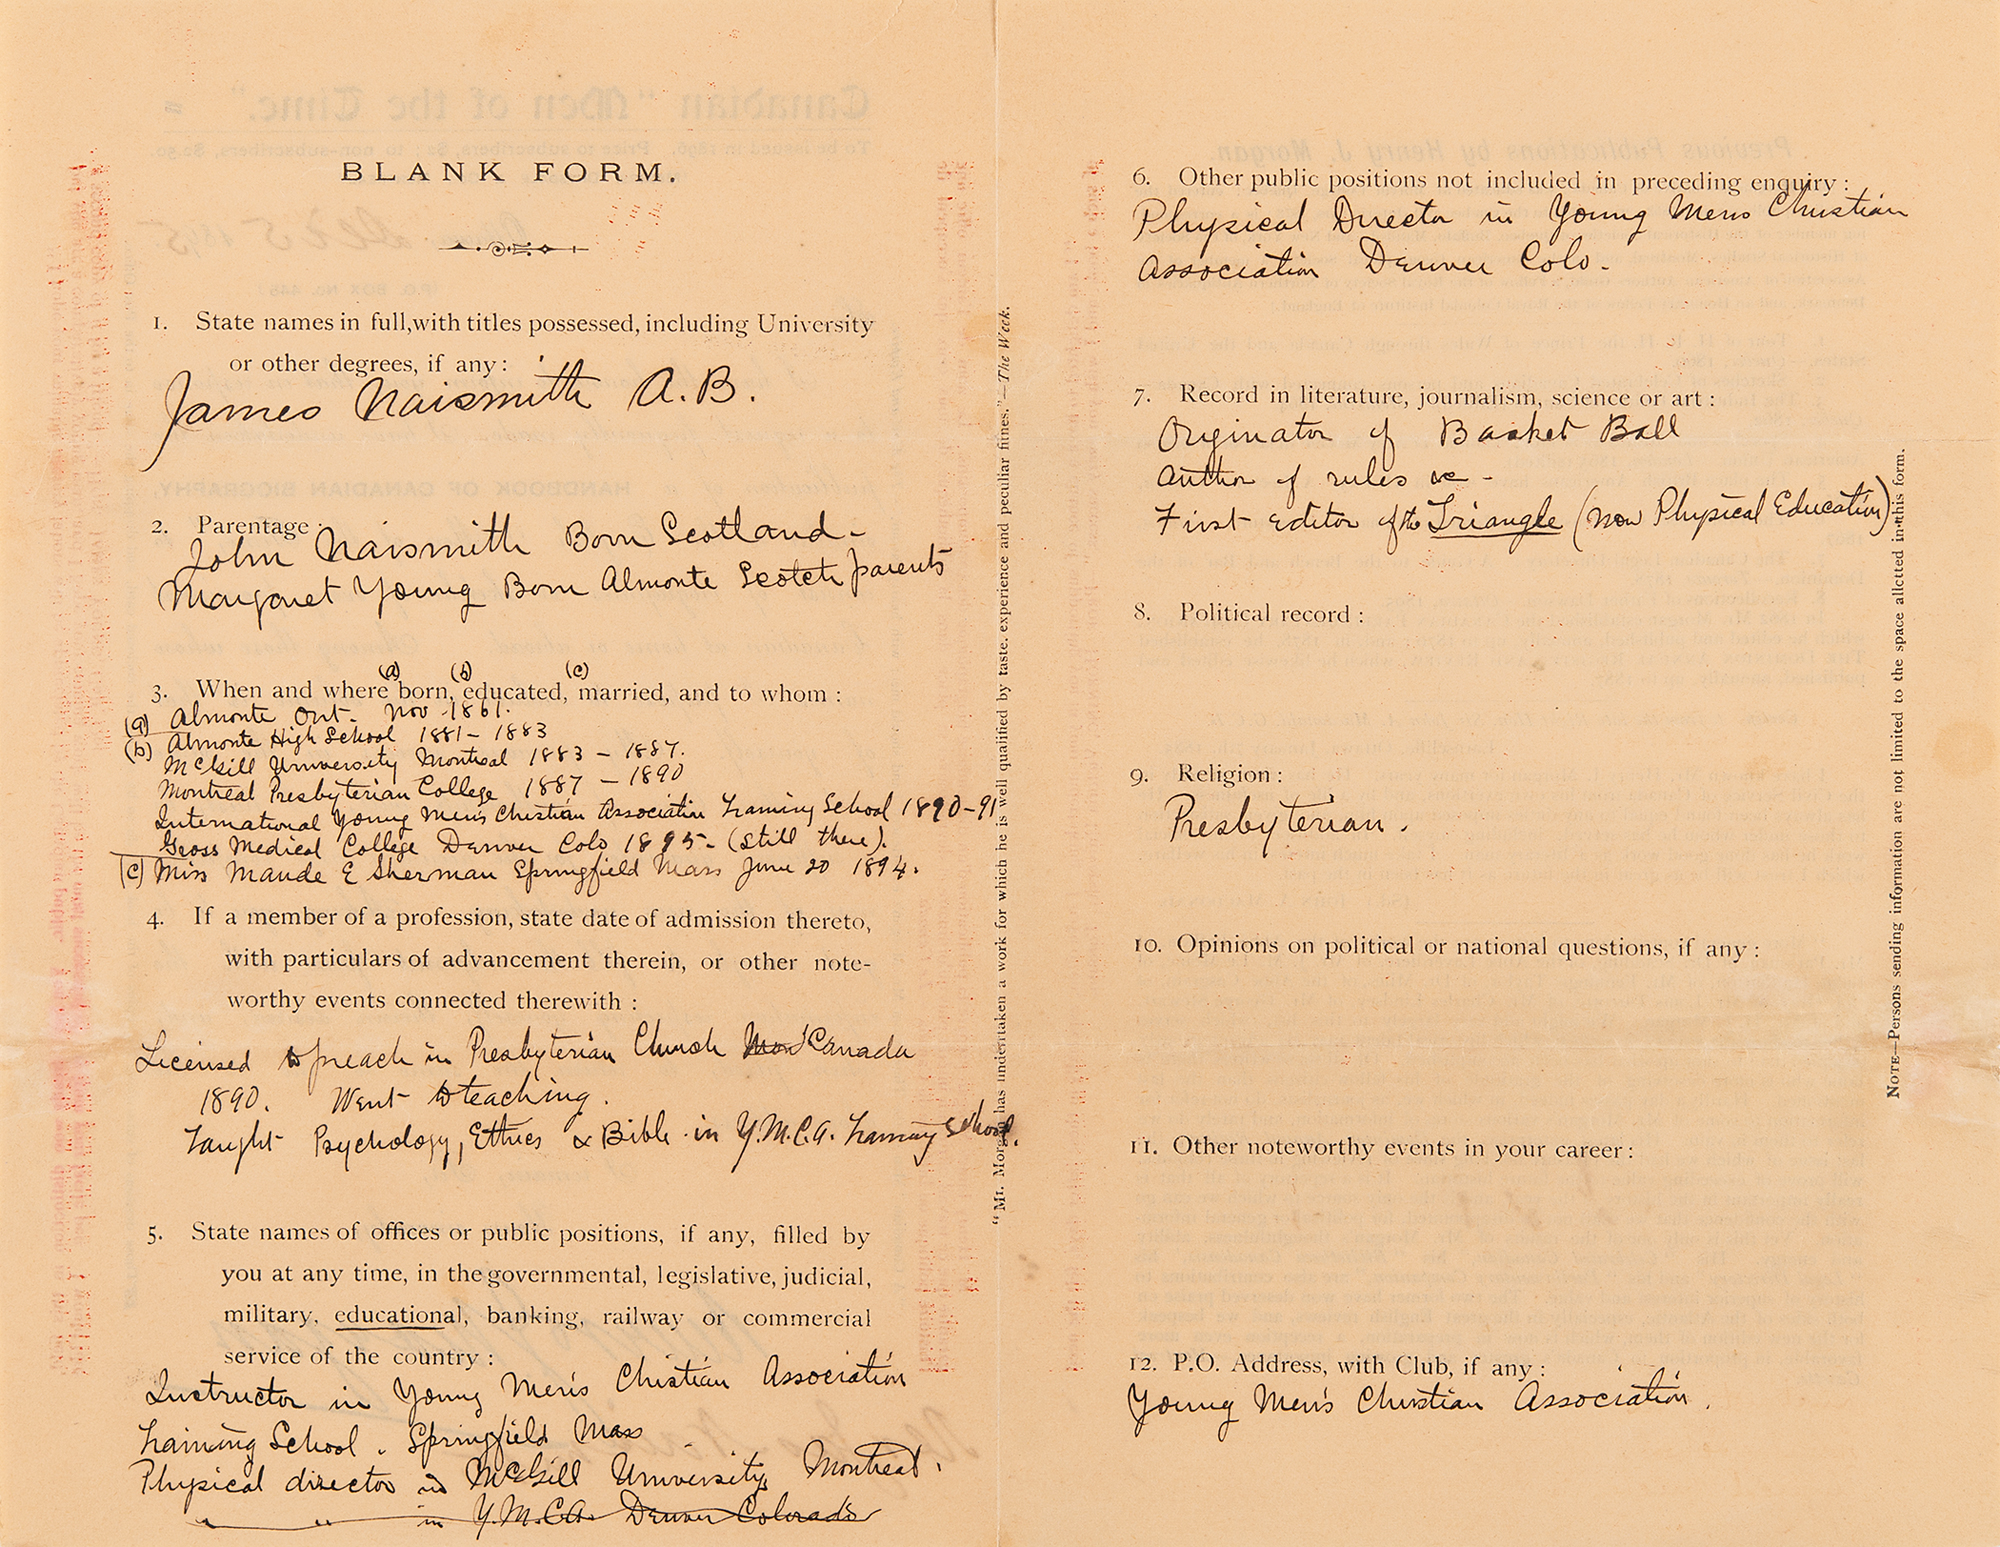 BLANK FORM.
1. State names in full, with titles possessed, including University
or other degrees, if any :
James Naismith A.B.
2. Parentage :
John Naismith Born Scotland -
Margaret Young Born Almonte Scotch parents
(a) (b) (c)
3. When and where born, educated, married, and to whom :
(a) Almonte Ont. Nov 1861.
(b) Almonte High School 1881 - 1883
McGill University Montreal 1883 - 1887.
Montreal Presbyterian College 1887 - 1890
International Young Men's Christian Association Training School 1890-91
Gross Medical College Denver Colo 1895 - (still there).
(c) Miss Maude E Sherman Springfield Mass June 20 1894.
4. If a member of a profession, state date of admission thereto,
with particulars of advancement therein, or other note-
worthy events connected therewith :
Licensed to preach in Presbyterian Church Canada
1890. Went to teaching.
Taught Psychology, Ethics & Bible in Y.M.C.A. Training School.
5. State names of offices or public positions, if any, filled by
you at any time, in the governmental, legislative, judicial,
military, educational, banking, railway or commercial
service of the country :
Instructor in Young Men's Christian Association
Training School. Springfield Mass
Physical director in McGill University, Montreal.
" " in Y.M.C.A. Denver Colorado
"Mr. Morgan has undertaken a work for which he is well qualified by taste, experience and peculiar fitness."—The Week.
6. Other public positions not included in preceding enquiry :
Physical Director in Young Mens Christian
Association Denver Colo.
7. Record in literature, journalism, science or art :
Originator of Basket Ball
Author of rules &c -
First editor of the Triangle (now Physical Education)
8. Political record :
9. Religion :
Presbyterian.
10. Opinions on political or national questions, if any :
11. Other noteworthy events in your career :
12. P.O. Address, with Club, if any :
Young Men's Christian Association.
NOTE—Persons sending information are not limited to the space allotted in this form.